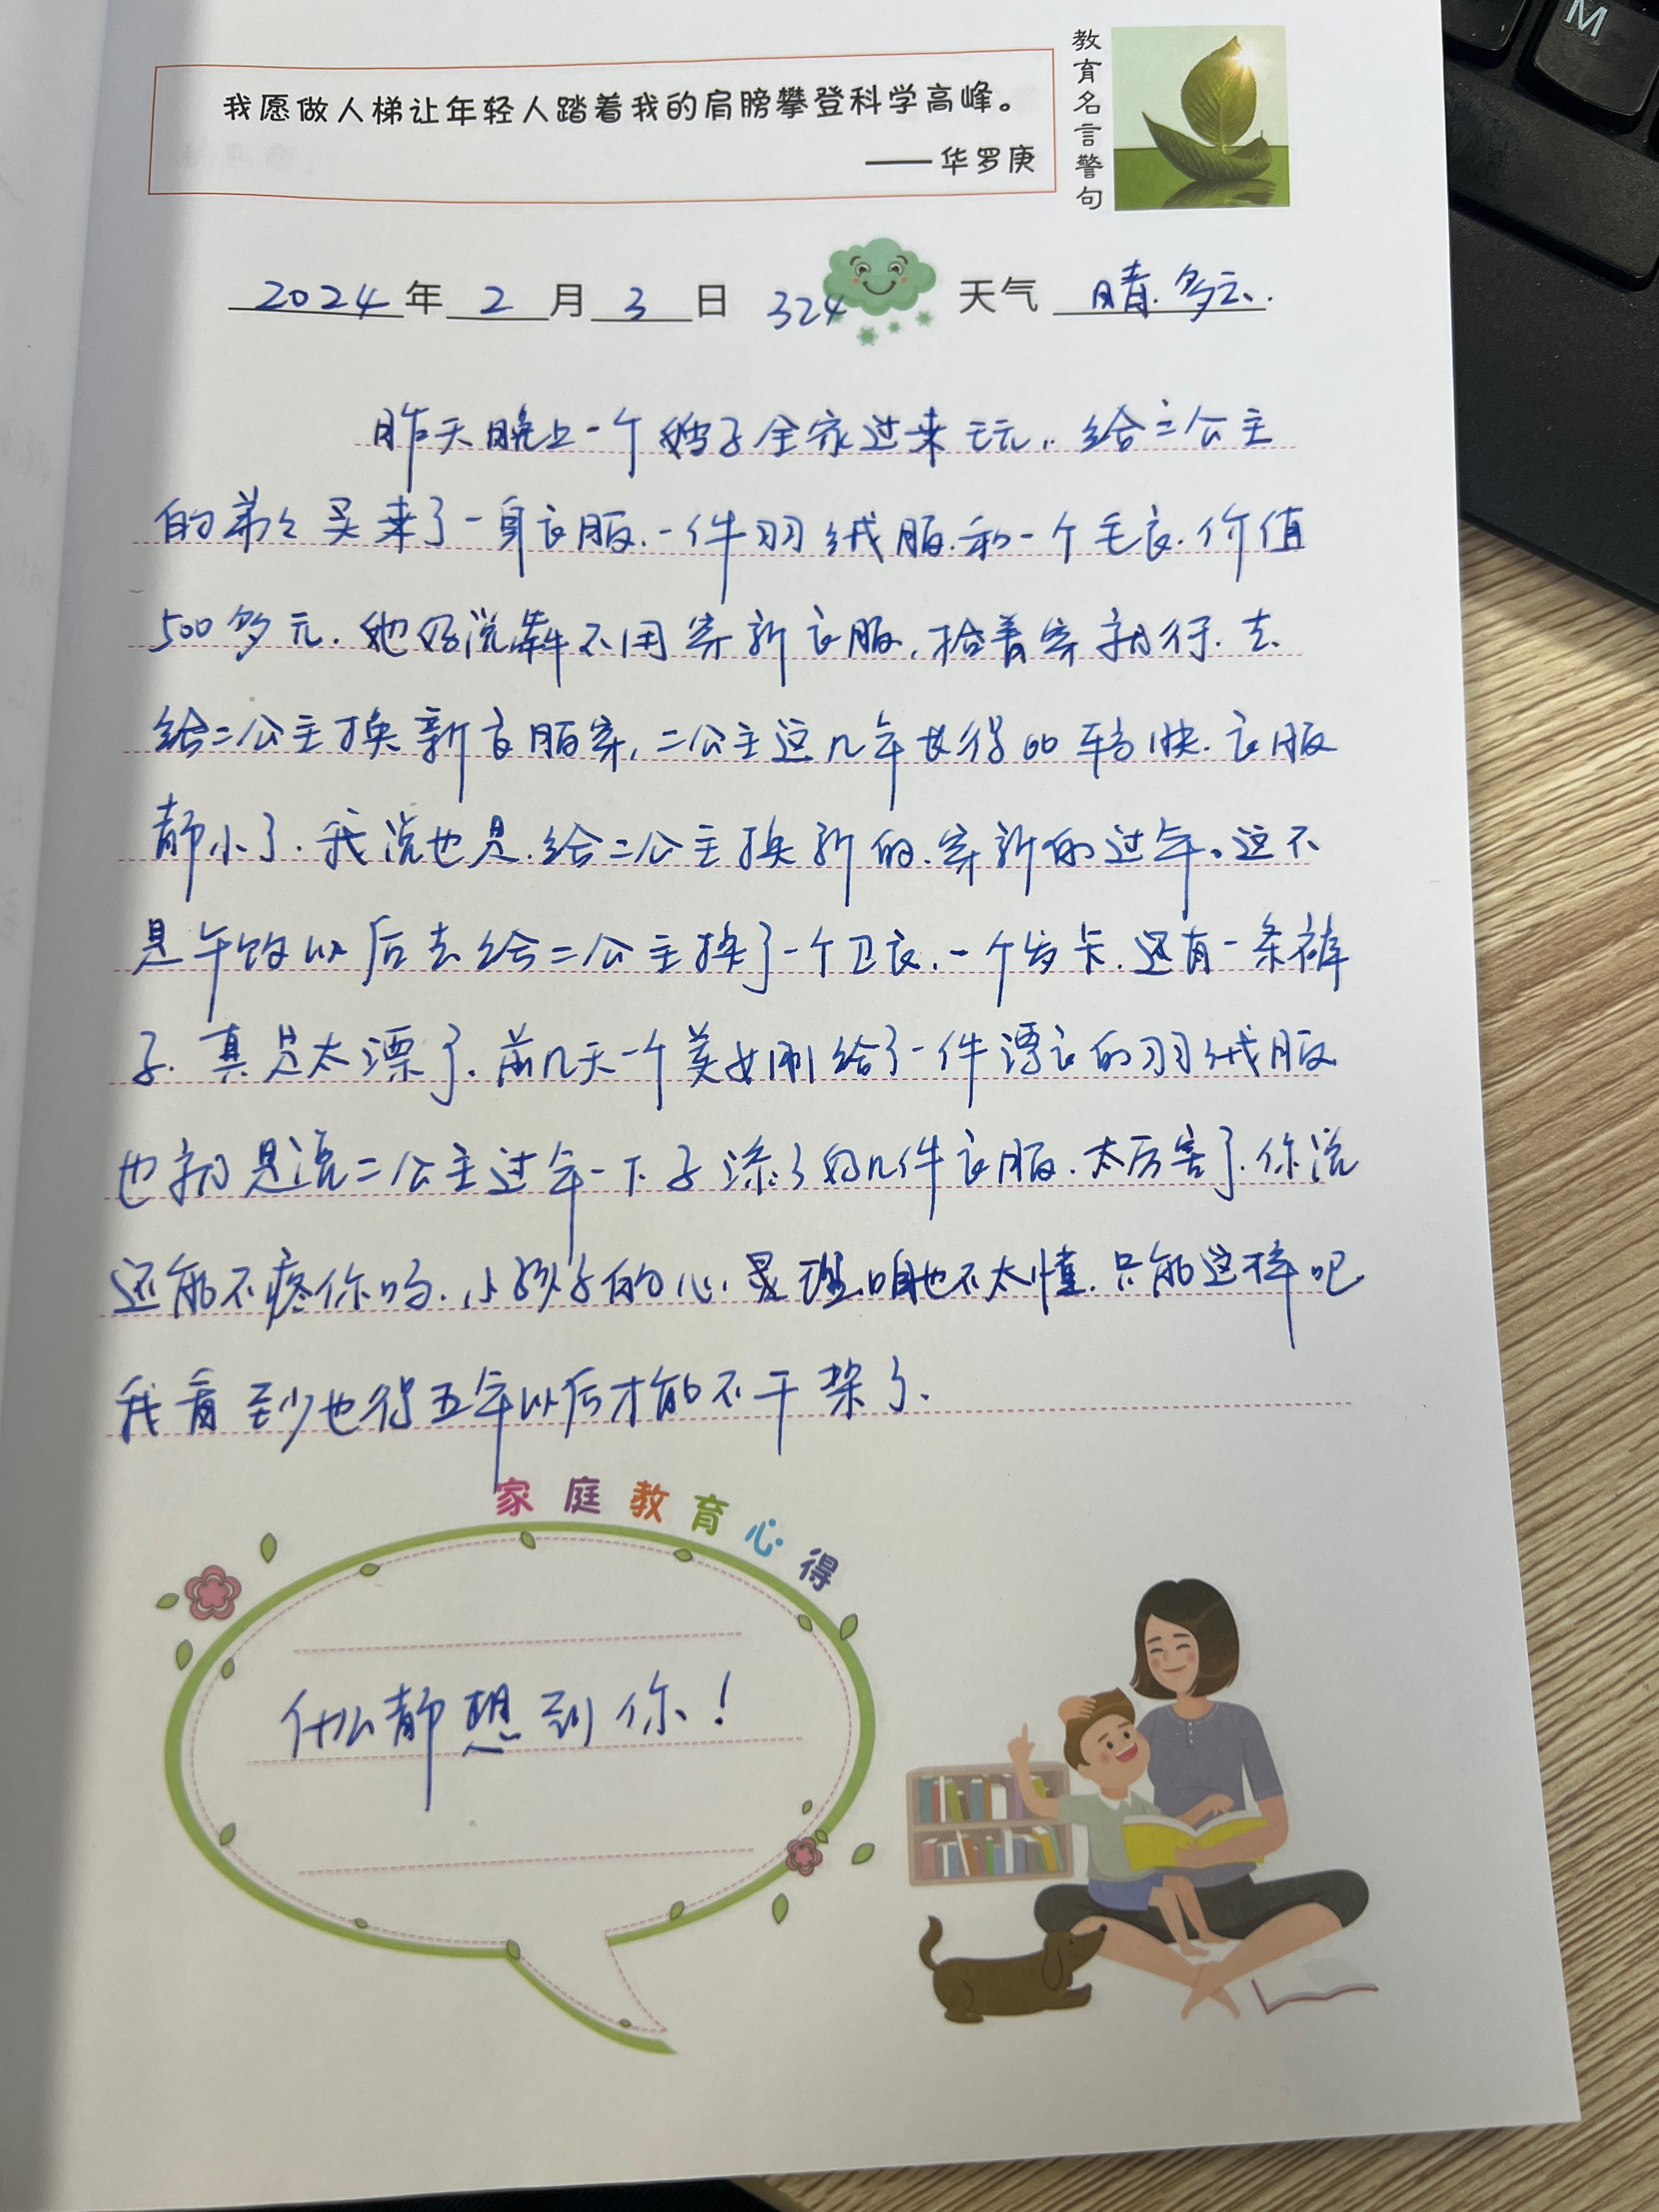 我愿做人梯让年轻人踏着我的肩膀攀登科学高峰。
——华罗庚
教育名言警句
2024年2月3日 324 天气 晴.多云.
昨天晚上一个嫂子全家过来玩.给二公主
的弟弟买来了一身衣服.一件羽绒服.和一个毛衣.价值
500多元.她妈说犇不用穿新衣服,拾着穿就行.去
给二公主换新衣服穿,二公主这几年长得的较快.衣服
都小了.我说也是.给二公主换新的.穿新的过年。这不
是午饭以后去给二公主换了一个卫衣.一个发卡.还有一条裤
子.真是太漂了.前几天一个美女刚给了一件漂亮的羽绒服
也就是说二公主过年一下子添了好几件衣服.太厉害了.你说
还能不疼你吗.小孩子的心.理.咱也不太懂.只能这样吧
我看至少也得五年以后才能不干架了.
家庭教育心得
什么都想到你!
M